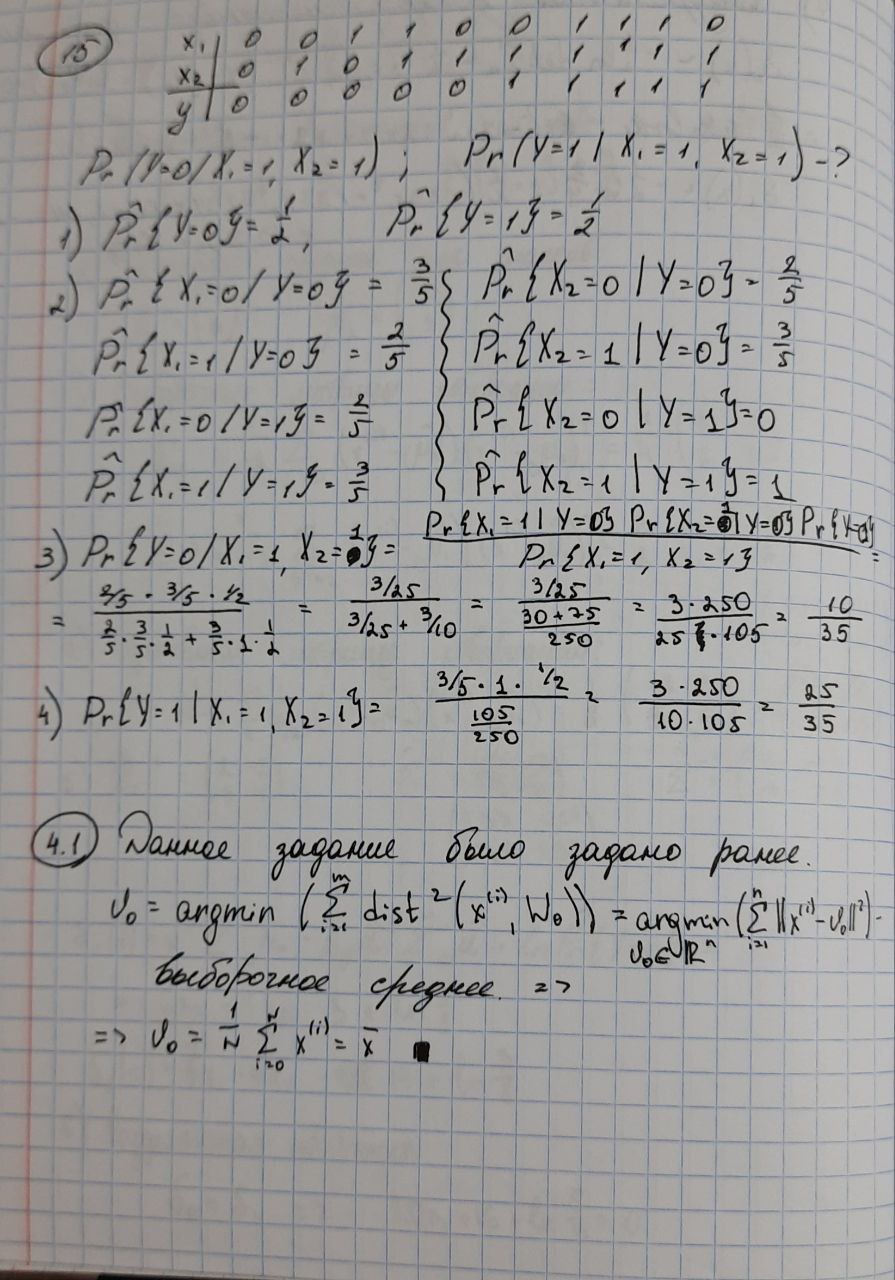 15
x₁ | 0 0 1 1 0 0 1 1 1 0
x₂ | 0 1 0 1 1 1 1 1 1 1
y | 0 0 0 0 0 1 1 1 1 1
Pr(Y=0/X₁=1, X₂=1) ; Pr(Y=1 | X₁=1, X₂=1) -?
1) P̂r{Y=0} = 1/2, P̂r{Y=1} = 1/2
2) P̂r{X₁=0/Y=0} = 3/5 } P̂r{X₂=0 | Y=0} = 2/5
P̂r{X₁=1/Y=0} = 2/5 P̂r{X₂=1 | Y=0} = 3/5
P̂r{X₁=0/Y=1} = 2/5 P̂r{X₂=0 | Y=1} = 0
P̂r{X₁=1/Y=1} = 3/5 P̂r{X₂=1 | Y=1} = 1
3) Pr{Y=0/X₁=1, X₂=1} = (Pr{X₁=1 | Y=0} Pr{X₂=1 | Y=0} Pr{Y=0}) / (Pr{X₁=1, X₂=1}) =
= (2/5 · 3/5 · 1/2) / (2/5 · 3/5 · 1/2 + 3/5 · 1 · 1/2) = (3/25) / (3/25 + 3/10) = (3/25) / ((30+75)/250) = (3·250) / (25·105) = 10/35
4) Pr{Y=1 | X₁=1, X₂=1} = (3/5 · 1 · 1/2) / (105/250) = (3·250) / (10·105) = 25/35
4.1 Данное задание было задано ранее.
υ₀ = argmin (∑ᵢ₌₁ᵐ dist²(x⁽ⁱ⁾, W₀)) = argmin υ₀∈ℝⁿ (∑ᵢ₌₁ⁿ ||x⁽ⁱ⁾-υ₀||²) -
выборочное среднее. =>
=> υ₀ = 1/N ∑ᵢ₌₀ᴺ x⁽ⁱ⁾ = x̄ ■